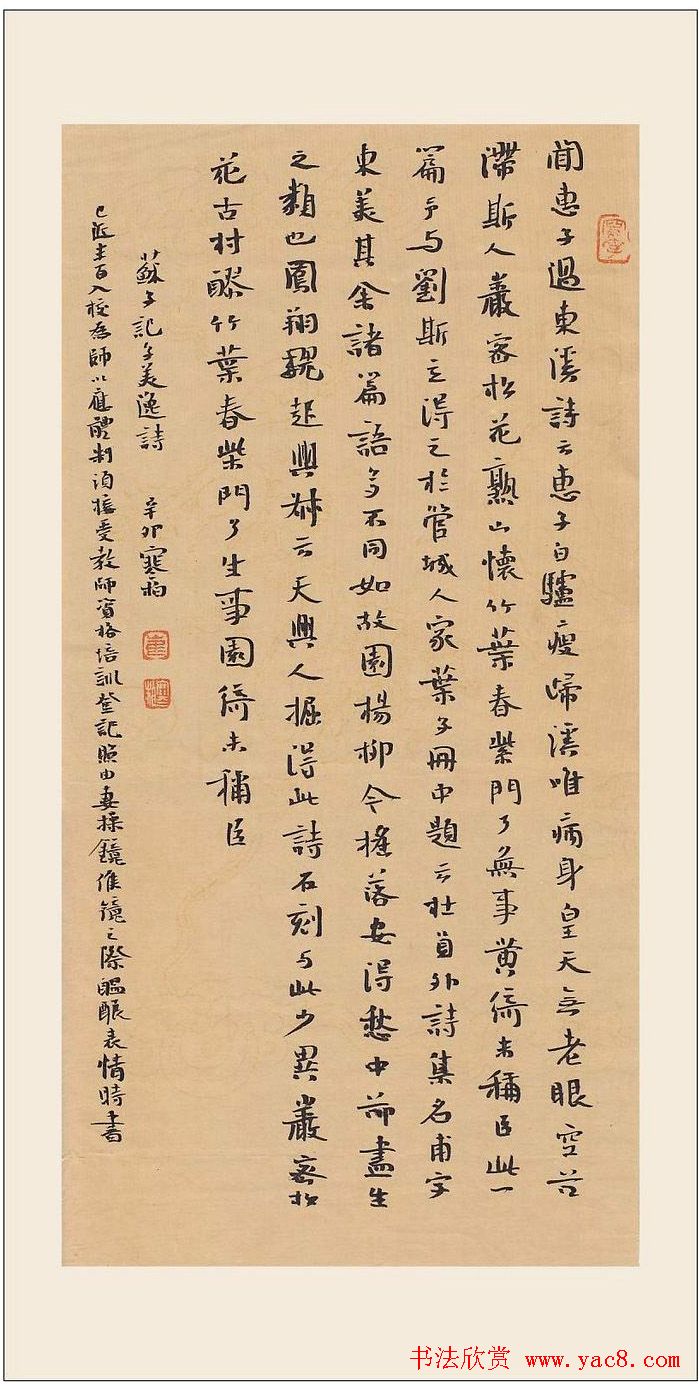 聞惠子過東溪詩云惠子白驢瘦歸溪唯病身皇天無老眼空谷
滯斯人巖密松花熟山懷竹葉春柴門了無事黄綺未稱臣此一
篇予与劉斯立得之於管城人家葉子冊中題云杜員外詩集名甫字
東美其余諸篇語多不同如故園楊柳今摇落安得愁中却盡生
之類也鳳翔魏起興叔云天興人掘得此詩石刻与此少異巖密松
花古村醪竹葉春柴門了生事園綺未稱臣
蘇子記子美逸詩 辛卯寒柏
已近半百入校為師以應體制須接受教師資格培訓登記照由妻操鏡俟鏡之際醞釀表情時書
书法欣赏 www.yac8.com